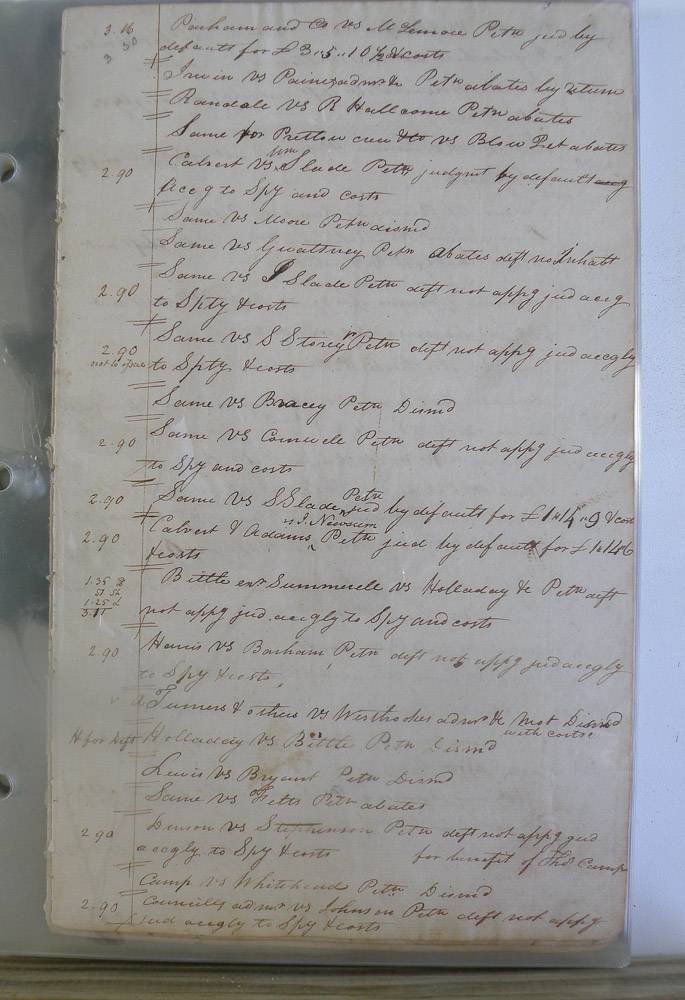 3.16 Parham and Co vs McLemore Petn jud by
3 50 defaults for £3.5.10½ & costs
Irwin vs Paines admr &c Petn abates by return
Randale vs R Hallcome Petn abates
Same for Pretlow crew &co vs Blow Pet abates
2.90 Calvert vs Wm Slade Petn judgmt by default
accg to Spy and costs
Same vs Moore Petn dismd
Same vs Gwaltney Petn abates deft no Inhabt
Same vs J Slade Petn deft not appg jud accg
2.90 to Spty & costs
Same vs S Storey Petn deft not appg jud accgly
2.90 to Spty & costs
Same vs Bracey Petn Dismd
Same vs Cornwele Petn deft not appg jud accgly
2.90 to Spy and costs
2.90 Same vs S Slade Petn jud by defaults for £1.14.9 & cost
2.90 Calvert & Adams vs J. Newsum Petn jud by default for £1.14.6
& costs
Bittle exr Summerele vs Holladay &c Petn deft
1.35
1.25
not appg jud. accgly to Spy and costs
2.90 Harris vs Barham Petn deft not appg jud accgly
to Spy & costs
Turners & others vs Westbrookes admr &c Mot Dismd
with costs
H for Deft Holladay vs Bittle Petn Dismd
Lewis vs Bryant Petn Dismd
Same vs Felts Petn abates
2.90 Denson vs Stephenson Petn deft not appg jud
accgly to Spy & costs for benefit of Thos Camp
Camp vs Whitehead Petn Dismd
2.90 Councills admr vs Johnson Petn deft not appg
jud accgly to Spy & costs